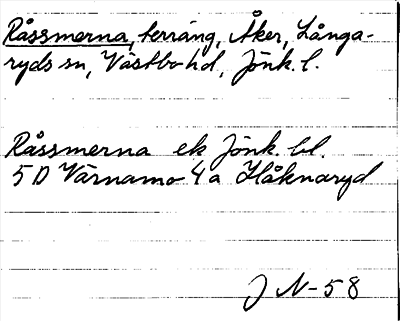 Råssmerna, terräng, Åker, Långa-
ryds sn, Västbo hd, Jönk. l.
Råssmerna ek Jönk. bl.
5 D Värnamo 4 a Håknaryd
J N-58